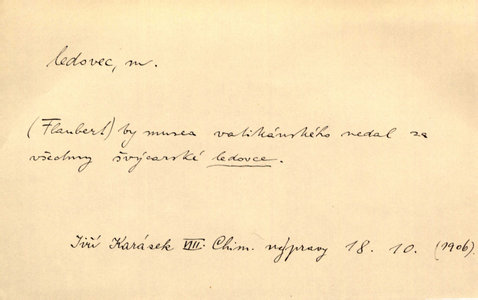 ledovec, m.
(Flaubert) by musea vatikánského nedal za
všechny švýcarské ledovce.
Jiří Karásek VIII. Chim. výpravy 18. 10. (1906).